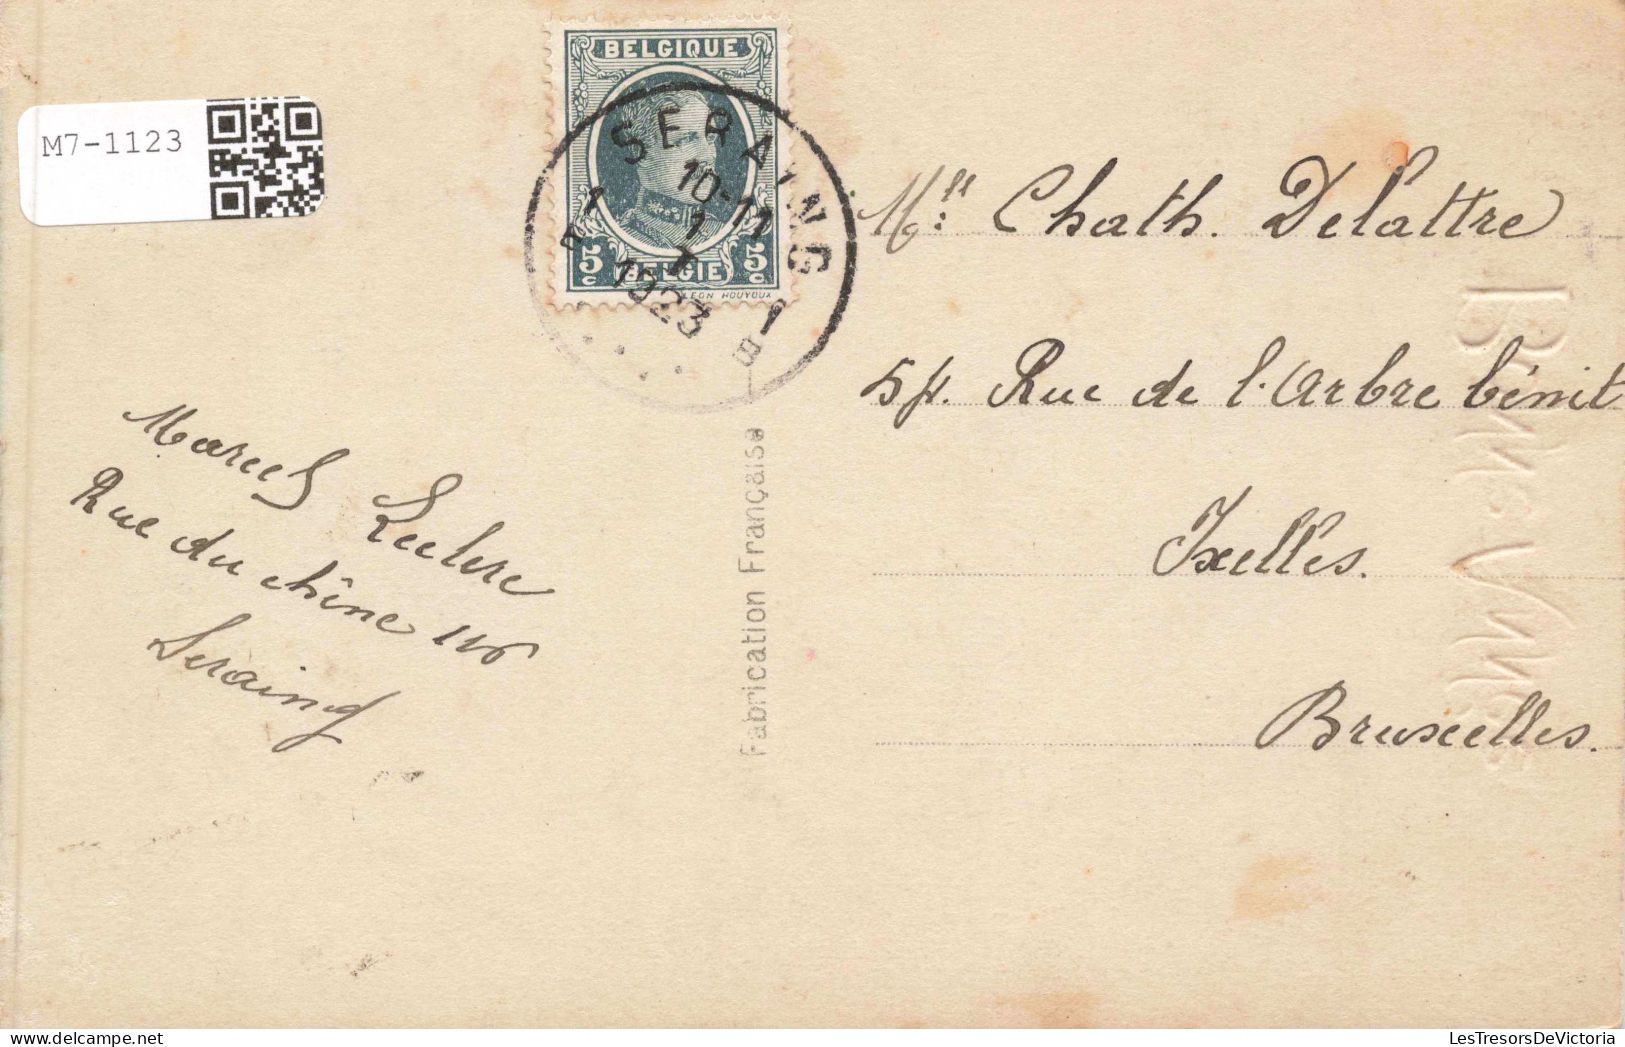 M7-1123
BELGIQUE
5c BELGIE 5c
LEON HOUYOUX
SERAING
10-11
1
1923
1 B
Mlle Chath. Delattre
Rue de l'Arbre bénit
Ixelles.
Bruxelles.
Marcel Leclerc
Rue du chêne 116
Seraing
Fabrication Française
LesTresorsDeVictoria